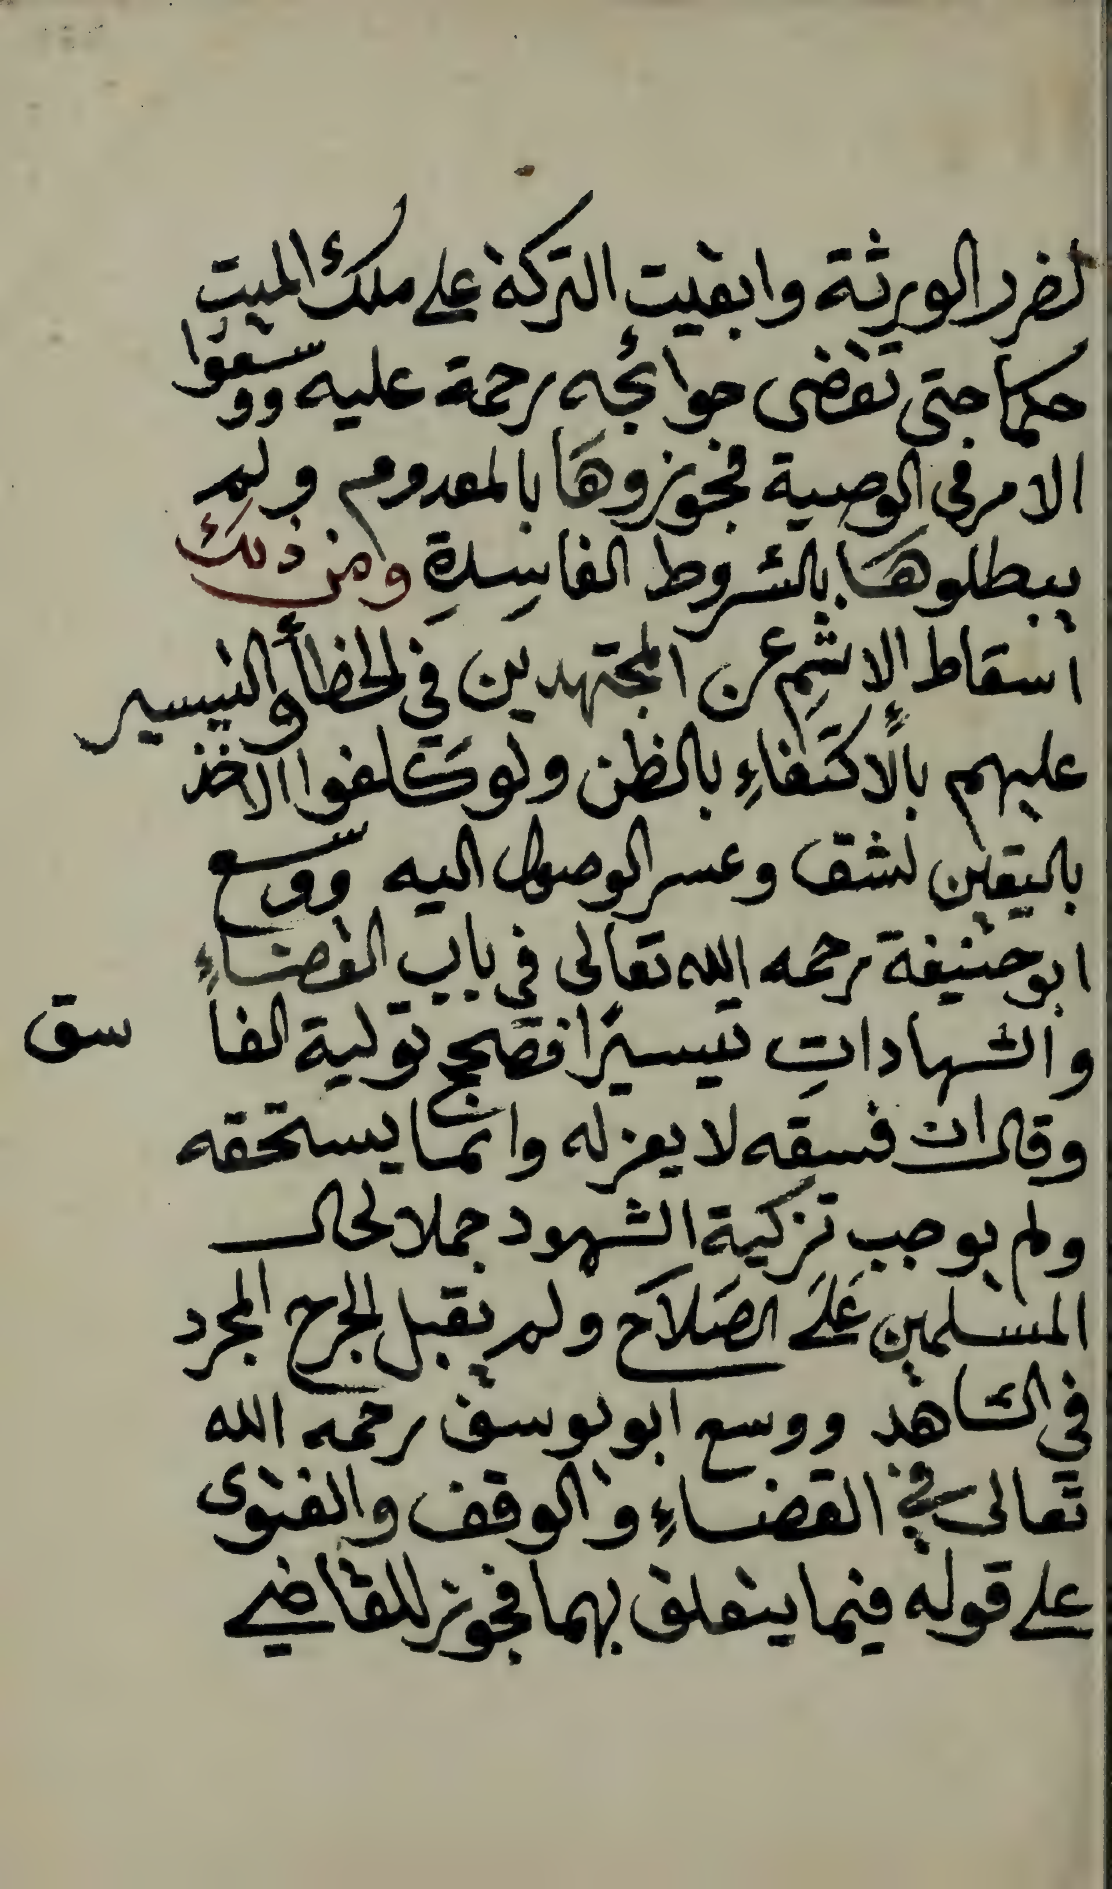 لضرر الورثة وابقيت التركة على ملك الميت
حكما حتى تقضى حوائجه رحمة عليه ووسعوا
الامر في الوصية فجوزوها بالمعدوم ولم
يبطلوها بالشروط الفاسِدةِ ومن ذلك
اسقاط الإثمِ عن المجتهدين في الخطأ والتيسير
عليهم بالاكتفاءِ بالظن ولو كلفوا الاخذ
باليقين لشق وعسر الوصول اليه ووسع
ابو حنيفة رحمه الله تعالى في باب القضاءِ
والشهاداتِ تيسيرًا فصحح تولية الفاسق
وقال ان فسقه لا يعزله وانما يستحقه
ولم يوجب تزكية الشهود حملا لحال
المسلمين عَلَى الصَلاَح ولم يقبل الجرح المجرد
في الشاهد ووسع ابو يوسف رحمه الله
تعالى في القضاءِ والوقف والفتوى
على قوله فيما يتعلق بهما فجوز للقاضي